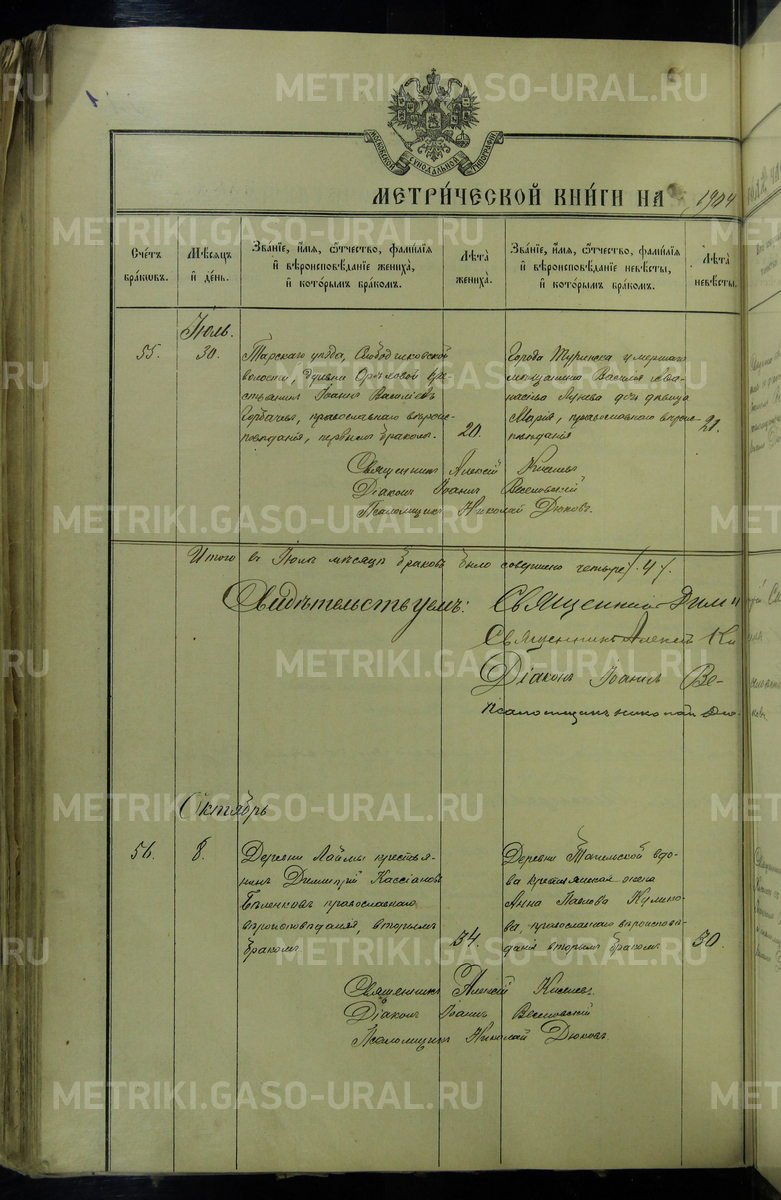 МОСКОВСКОЙ СѴНОДАЛЬНОЙ ТИПОГРАФІИ
МЕТРИ́ЧЕСКОЙ КНИ́ГИ НА 1904
Сче́тъ бра́ковъ.
Мѣ́сяцъ и҆ де́нь.
Зва́нїе, и҆́мя, ѻ҆́тчество, фами́лїя
и҆ вѣроисповѣ́данїе жениха̀,
и҆ кото́рымъ бра́комъ.
Лѣ́та жениха̀.
Зва́нїе, и҆́мя, ѻ҆́тчество, фами́лїя
и҆ вѣроисповѣ́данїе невѣ́сты,
и҆ кото́рымъ бра́комъ.
Лѣ́та невѣ́сты.
Іюль.
55.
30.
Тарскаго уѣзда,
волости, дрвни Орловой кре-
стьянинъ Іоаннъ Васильевъ
Горбачевъ, православнаго вѣроис-
повѣданія, первымъ бракомъ.
20.
Города Туринска умершаго
мѣщанина Василія Аѳа-
насьева Лунева дочь дѣвица
Марія, православнаго вѣроис-
повѣданія
21.
Священникъ Алексій Киселевъ
Діаконъ Іоаннъ Веселовскій
Псаломщикъ Николай Дюковъ.
Итого въ Іюлѣ мѣсяцѣ браковъ было совершено четыре /4/.
Свидѣтельствуемъ: Священникъ Дими
Священникъ Алексій Ки
Діаконъ Іоаннъ Ве-
Псаломщикъ Николай Дю-
Октябрь
56.
8.
Деревни Лаймы крестья-
нинъ Димитрій Кассіановъ
Бѣленковъ православнаго
вѣроисповѣданія, вторымъ
бракомъ
34.
Деревни Тагильской вдо-
ва крестьянская жена
Анна Павлова Кулико-
ва, православнаго вѣроисповѣ-
данія вторымъ бракомъ
30.
Священникъ Алексій Киселевъ.
Діаконъ Іоаннъ Веселовскій
Псаломщикъ Николай Дюковъ.
METRIKI.GASO-URAL.RU